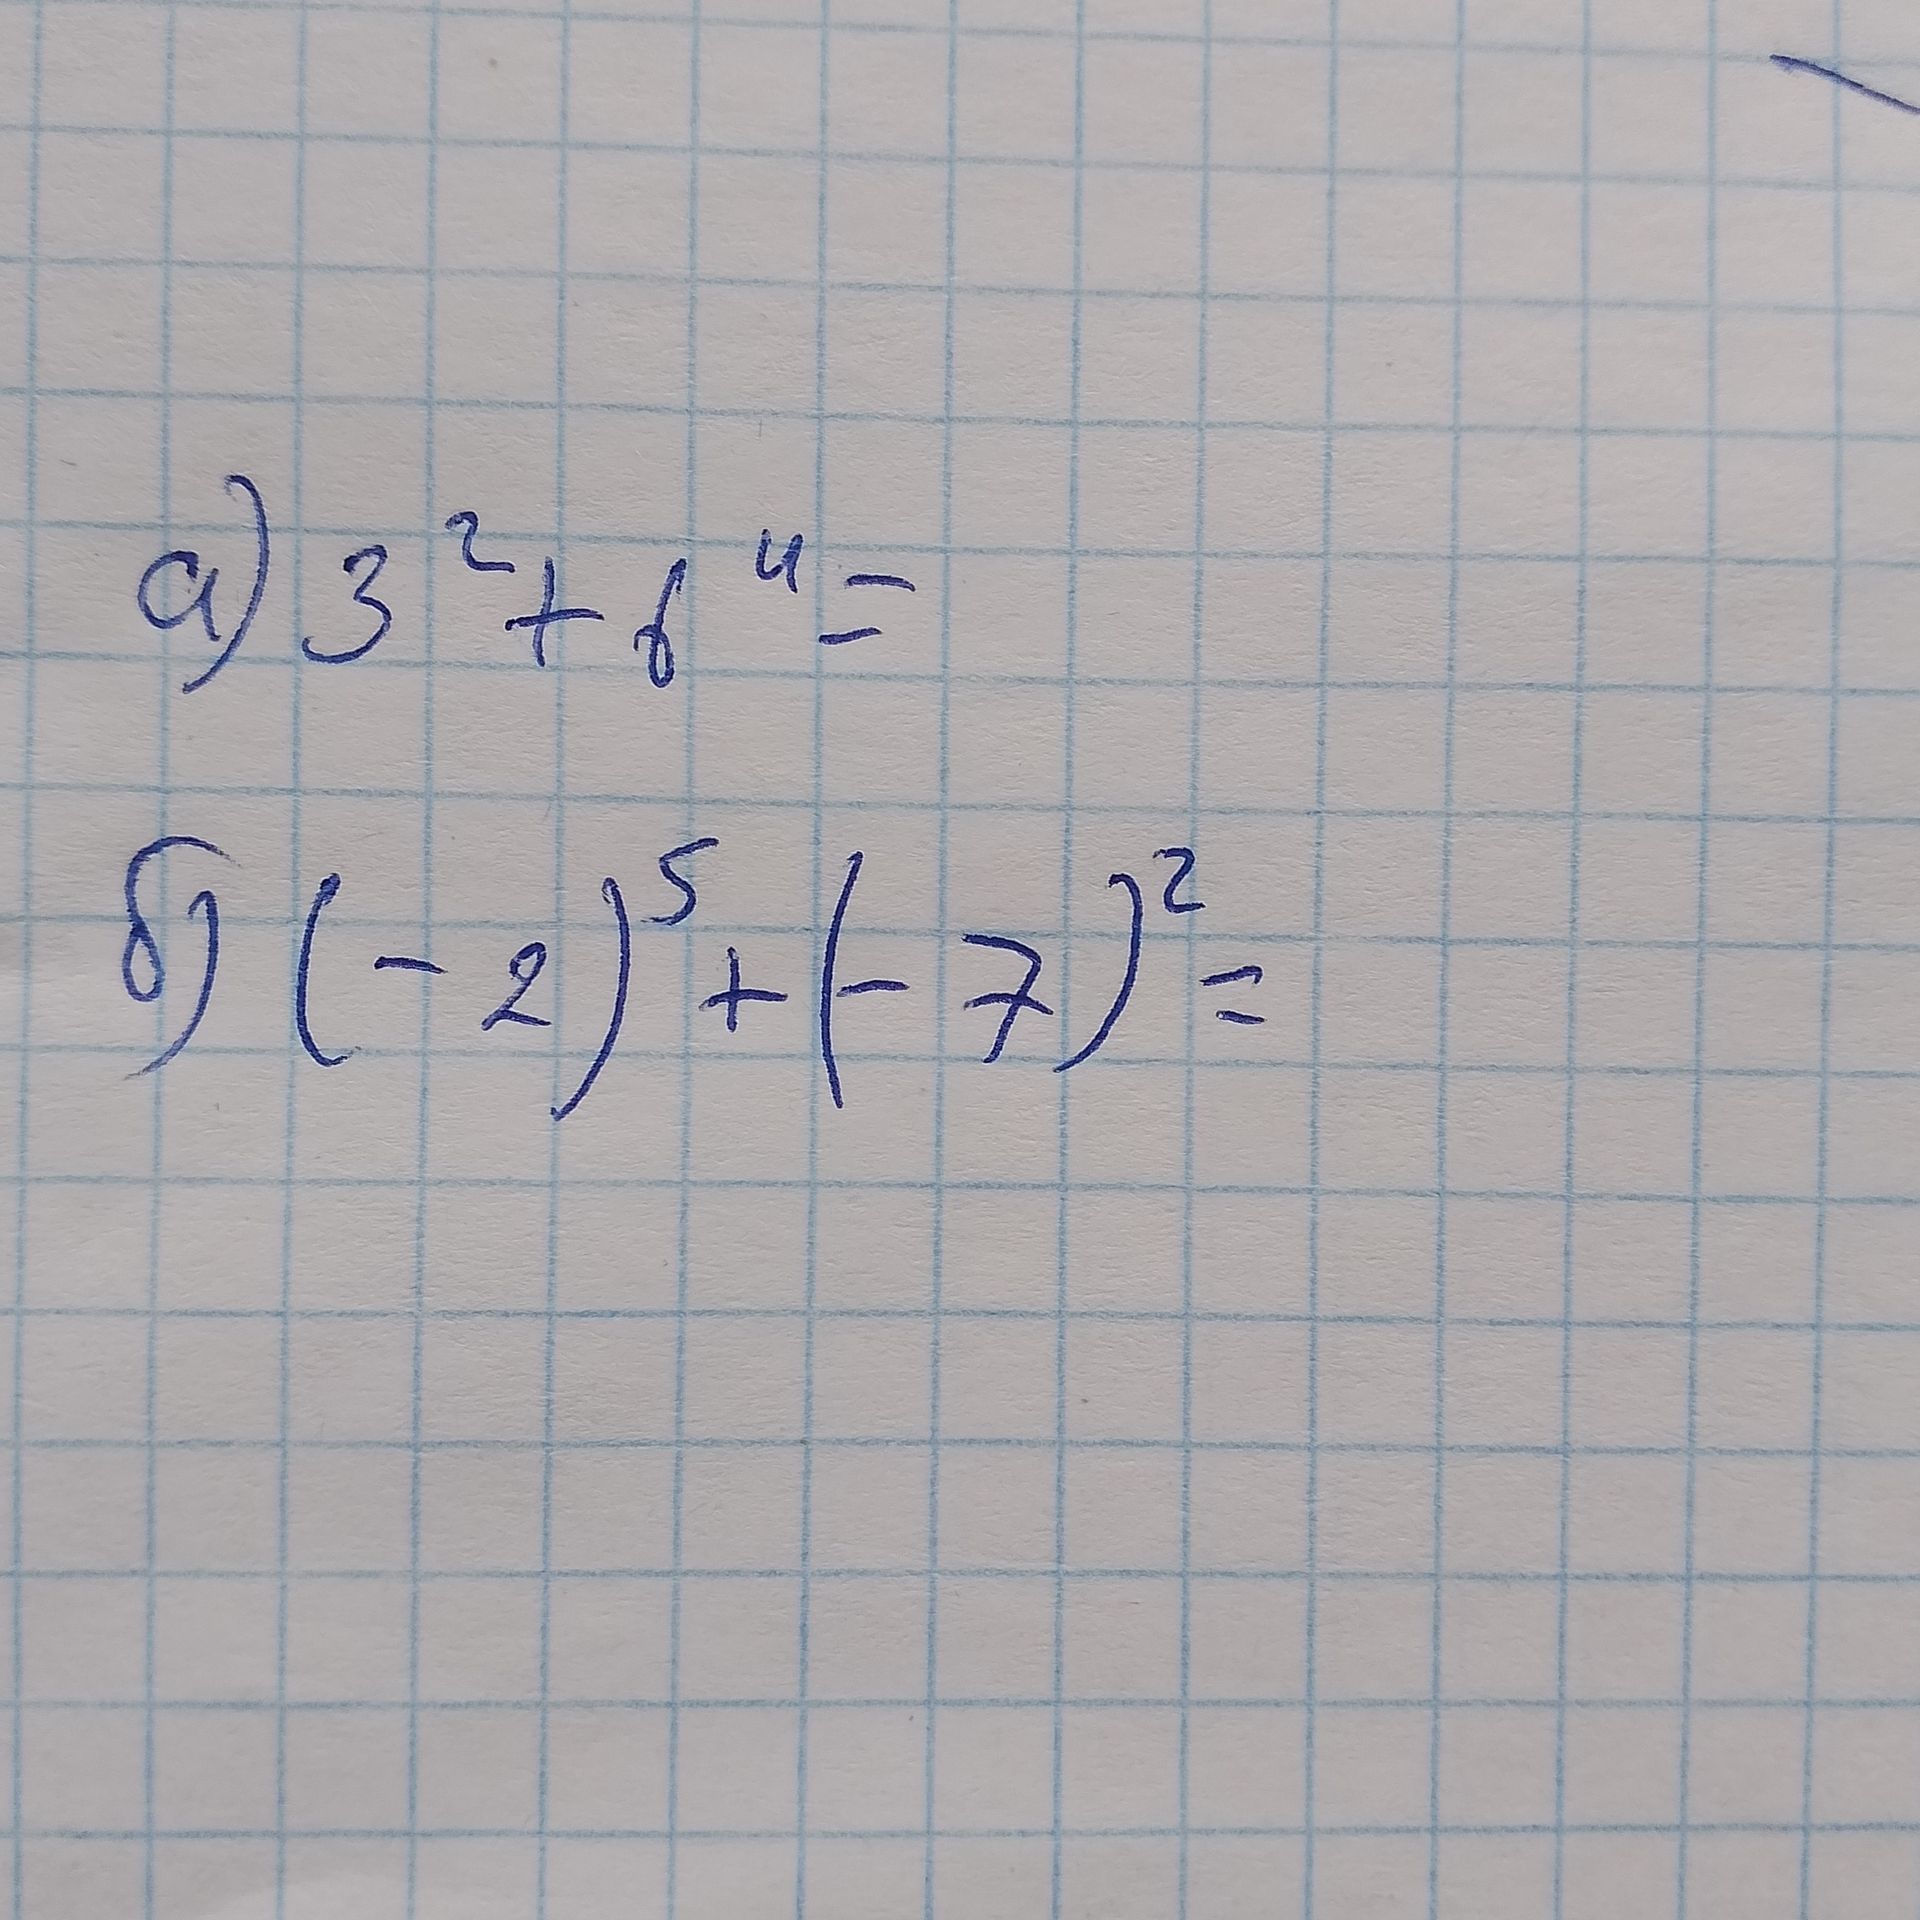 а) 3² + 6⁴ =
б) (-2)⁵ + (-7)² =